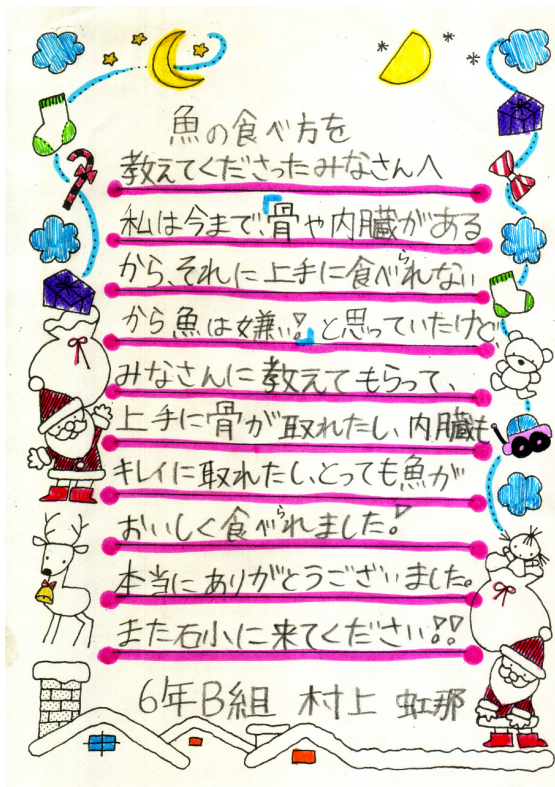 魚の食べ方を
教えてくださったみなさんへ
私は今まで、「骨や内臓がある
から、それに上手に食べられない
から魚は嫌い!」と思っていたけど、
みなさんに教えてもらって、
上手に骨が取れたし、内臓も
キレイに取れたし、とっても魚が
おいしく食べられました!
本当にありがとうございました。
また石小に来てください!!
6年B組 村上 虹那